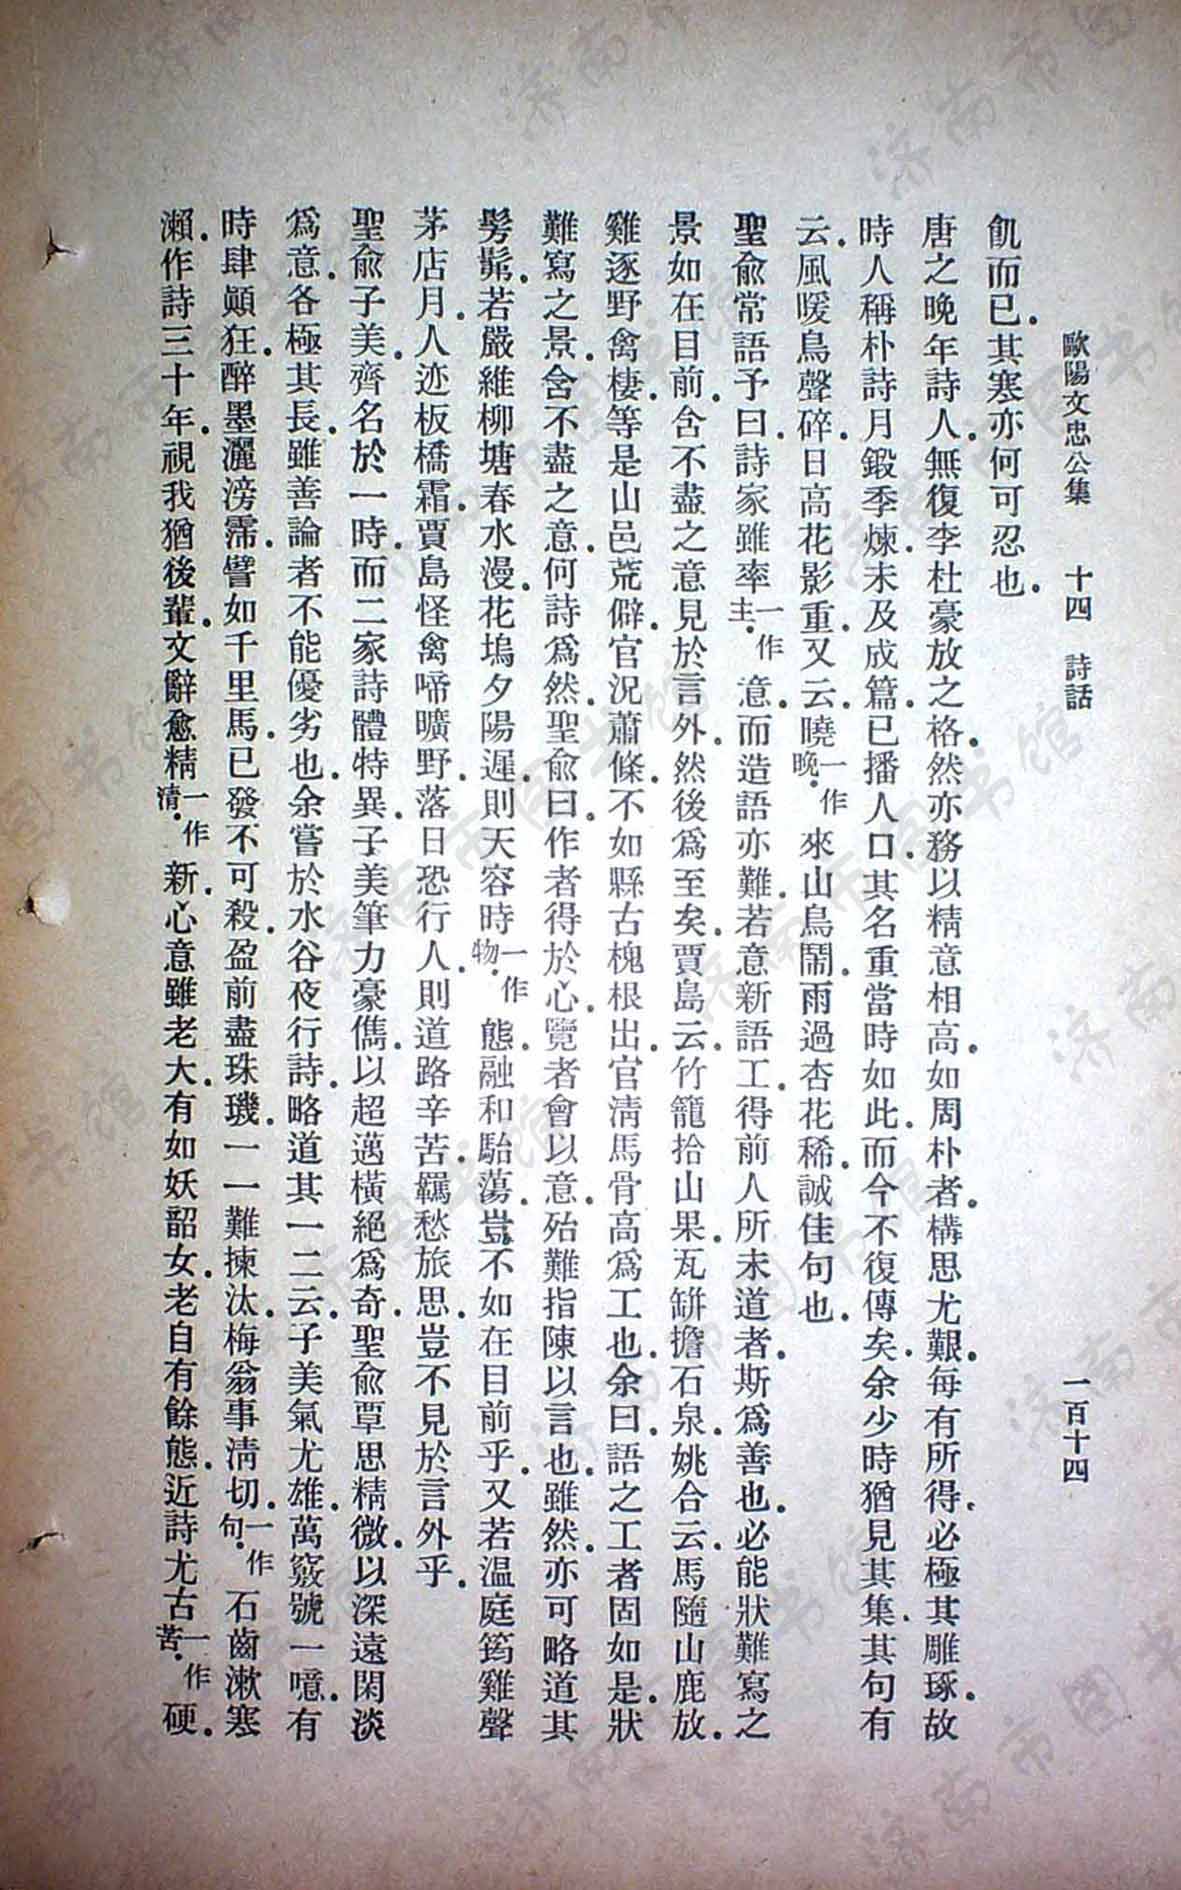 歐陽文忠公集　十四　詩話　一百十四
飢而已.其寒亦何可忍也.
唐之晚年詩人.無復李杜豪放之格.然亦務以精意相高.如周朴者.構思尤艱.每有所得.必極其雕琢.故
時人稱朴詩月鍛季煉.未及成篇.已播人口.其名重當時如此.而今不復傳矣.余少時猶見其集.其句有
云.風暖鳥聲碎.日高花影重.又云.曉一作晚.來山鳥鬧.雨過杏花稀.誠佳句也.
聖俞常語予曰.詩家雖率一作主.意.而造語亦難.若意新語工.得前人所未道者.斯爲善也.必能狀難寫之
景如在目前.含不盡之意見於言外.然後爲至矣.賈島云.竹籠拾山果.瓦缾擔石泉.姚合云.馬隨山鹿放.
雞逐野禽棲.等是山邑荒僻.官況蕭條.不如縣古槐根出.官淸馬骨高爲工也.余曰.語之工者固如是.狀
難寫之景.含不盡之意.何詩爲然.聖俞曰.作者得於心.覽者會以意.殆難指陳以言也.雖然.亦可略道其
髣髴.若嚴維柳塘春水漫.花塢夕陽遲.則天容時一作物.態.融和駘蕩.豈不如在目前乎.又若溫庭筠雞聲
茅店月.人迹板橋霜.賈島怪禽啼曠野.落日恐行人.則道路辛苦.羈愁旅思.豈不見於言外乎.
聖俞子美.齊名於一時.而二家詩體特異.子美筆力豪儁.以超邁橫絕爲奇.聖俞覃思精微.以深遠閑淡
爲意.各極其長.雖善論者不能優劣也.余嘗於水谷夜行詩.略道其一二云.子美氣尤雄.萬竅號一噫.有
時肆顚狂.醉墨灑滂霈.譬如千里馬.已發不可殺.盈前盡珠璣.一一難揀汰.梅翁事淸切.一作句.石齒漱寒
瀨.作詩三十年.視我猶後輩.文辭愈精一作淸.新.心意雖老大.有如妖韶女.老自有餘態.近詩尤古一作苦.硬.